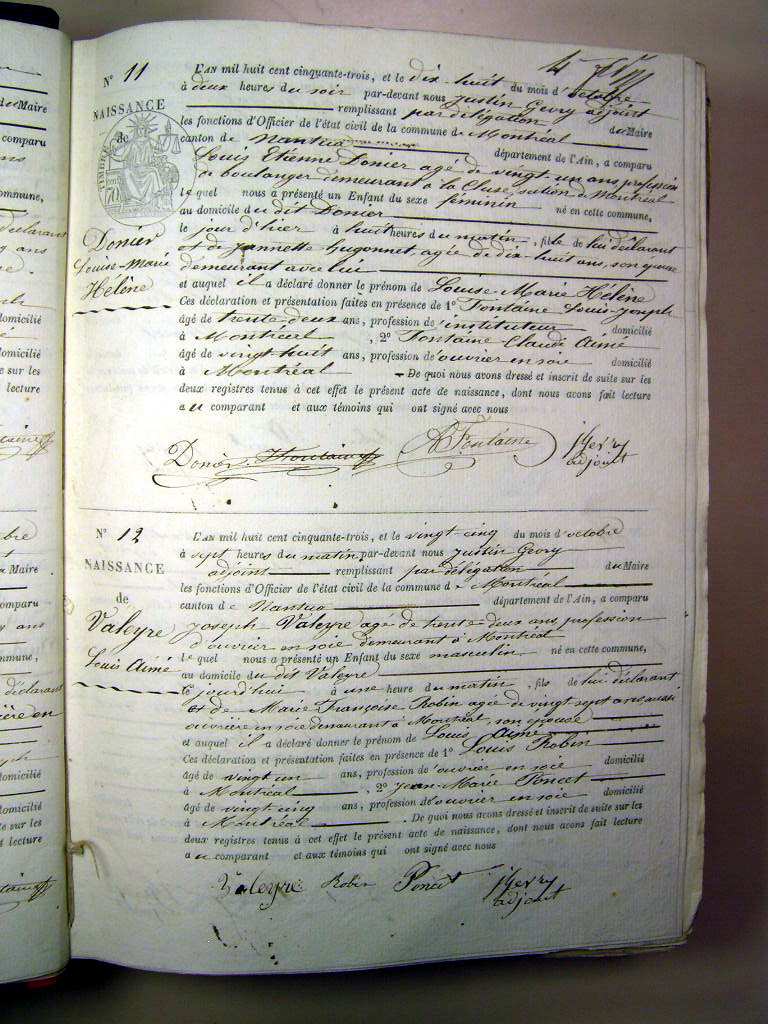 N° 11
NAISSANCE
de
TIMBRE
Donier
Louise-Marie
Hélène
L'AN mil huit cent cinquante-trois, et le dix-huit du mois d'octobre
à deux heures du soir par-devant nous Justin Gevry adjoint
remplissant par délégation du Maire
les fonctions d'Officier de l'état civil de la commune de Montréal
canton de Nantua département de l'Ain, a comparu
Louis Etienne Donier agé de vingt-un ans, profession
de boulanger demeurant à la Cluse, section de Montréal
lequel nous a présenté un Enfant du sexe feminin né en cette commune,
au domicile du dit Donier
le jour d'hier à huit heures du matin, fille de lui déclarant
et de Jannette Gugonnet, agée de dix-huit ans, son épouse
demeurant avec lui
et auquel il a déclaré donner le prénom de Louise-Marie Hélène
Ces déclaration et présentation faites en présence de 1° Fontaine Louis-Joseph
âgé de trente deux ans, profession d'instituteur domicilié
à Montréal, 2° Fontaine Claude Aimé
âgé de vingt huit ans, profession d'ouvrier en soie domicilié
à Montréal De quoi nous avons dressé et inscrit de suite sur les
deux registres tenus à cet effet le présent acte de naissance, dont nous avons fait lecture
au comparant et aux témoins qui ont signé avec nous
Donier Fontaine Fontaine JGevry
adjoint
N° 12
NAISSANCE
de
Valeyre
Louis Aimé
L'AN mil huit cent cinquante-trois, et le vingt-cinq du mois d'octobre
à sept heures du matin, par-devant nous Justin Gevry
adjoint remplissant par délégation du Maire
les fonctions d'Officier de l'état civil de la commune de Montréal
canton de Nantua département de l'Ain, a comparu
Joseph Valeyre agé de trente-deux ans, profession
d'ouvrier en soie demeurant à Montréal
lequel nous a présenté un Enfant du sexe masculin né en cette commune,
au domicile du dit Valeyre
le jourd'hui à une heure du matin, fils de lui déclarant
et de Marie Françoise Robin agée de vingt sept ans aussi
ouvrière en soie demeurant à Montréal, son épouse
et auquel il a déclaré donner le prénom de Louis Aimé
Ces déclaration et présentation faites en présence de 1° Louis Robin
âgé de vingt un ans, profession d'ouvrier en soie domicilié
à Montréal, 2° Jean-Marie Poncet
âgé de vingt cinq ans, profession d'ouvrier en soie domicilié
à Montréal. De quoi nous avons dressé et inscrit de suite sur les
deux registres tenus à cet effet le présent acte de naissance, dont nous avons fait lecture
au comparant et aux témoins qui ont signé avec nous
Valeyre Robin Poncet JGevry
adjoint